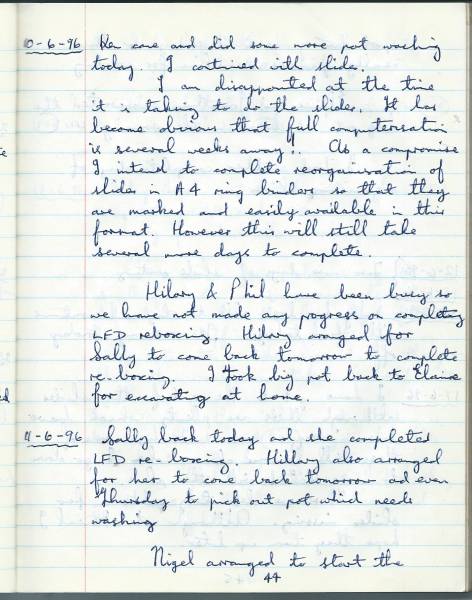 10-6-96 Ken came and did some more pot washing
today. I continued with slides.
I am disappointed at the time
it is taking to do the slides. It has
become obvious that full computerisation
is several weeks away!. As a compromise
I intend to complete reorganisation of
slides in A4 ring binders so that they
are marked and easily available in this
format. However this will still take
several more days to complete.
Hilary & Phil have been busy so
we have not made any progress on completing
LFD reboxing. Hilary arranged for
Sally to come back tomorrow to complete
re-boxing. I took big pot back to Elaine
for excavating at home.
11-6-96 Sally back today and she completed
LFD re-boxing. Hillary also arranged
for her to come back tomorrow and even
Thursday to pick out pot which needs
washing
Nigel arranged to start the
44